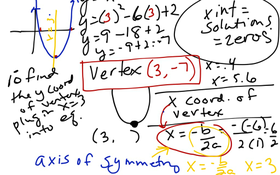 y=(3)²-6(3)+2
y=9-18+2
y=-9+2=-7
Vertex (3,-7)
x int=
Solution!
=zeros!
x=.4
x=5.6
to find
the y coord
of vertex
plug in x=3
into eq.
(3, )
x coord. of
vertex
x=-b/2a = -(-6)/2(1) = 6/2
axis of symmetry
x=-b/2a x=3